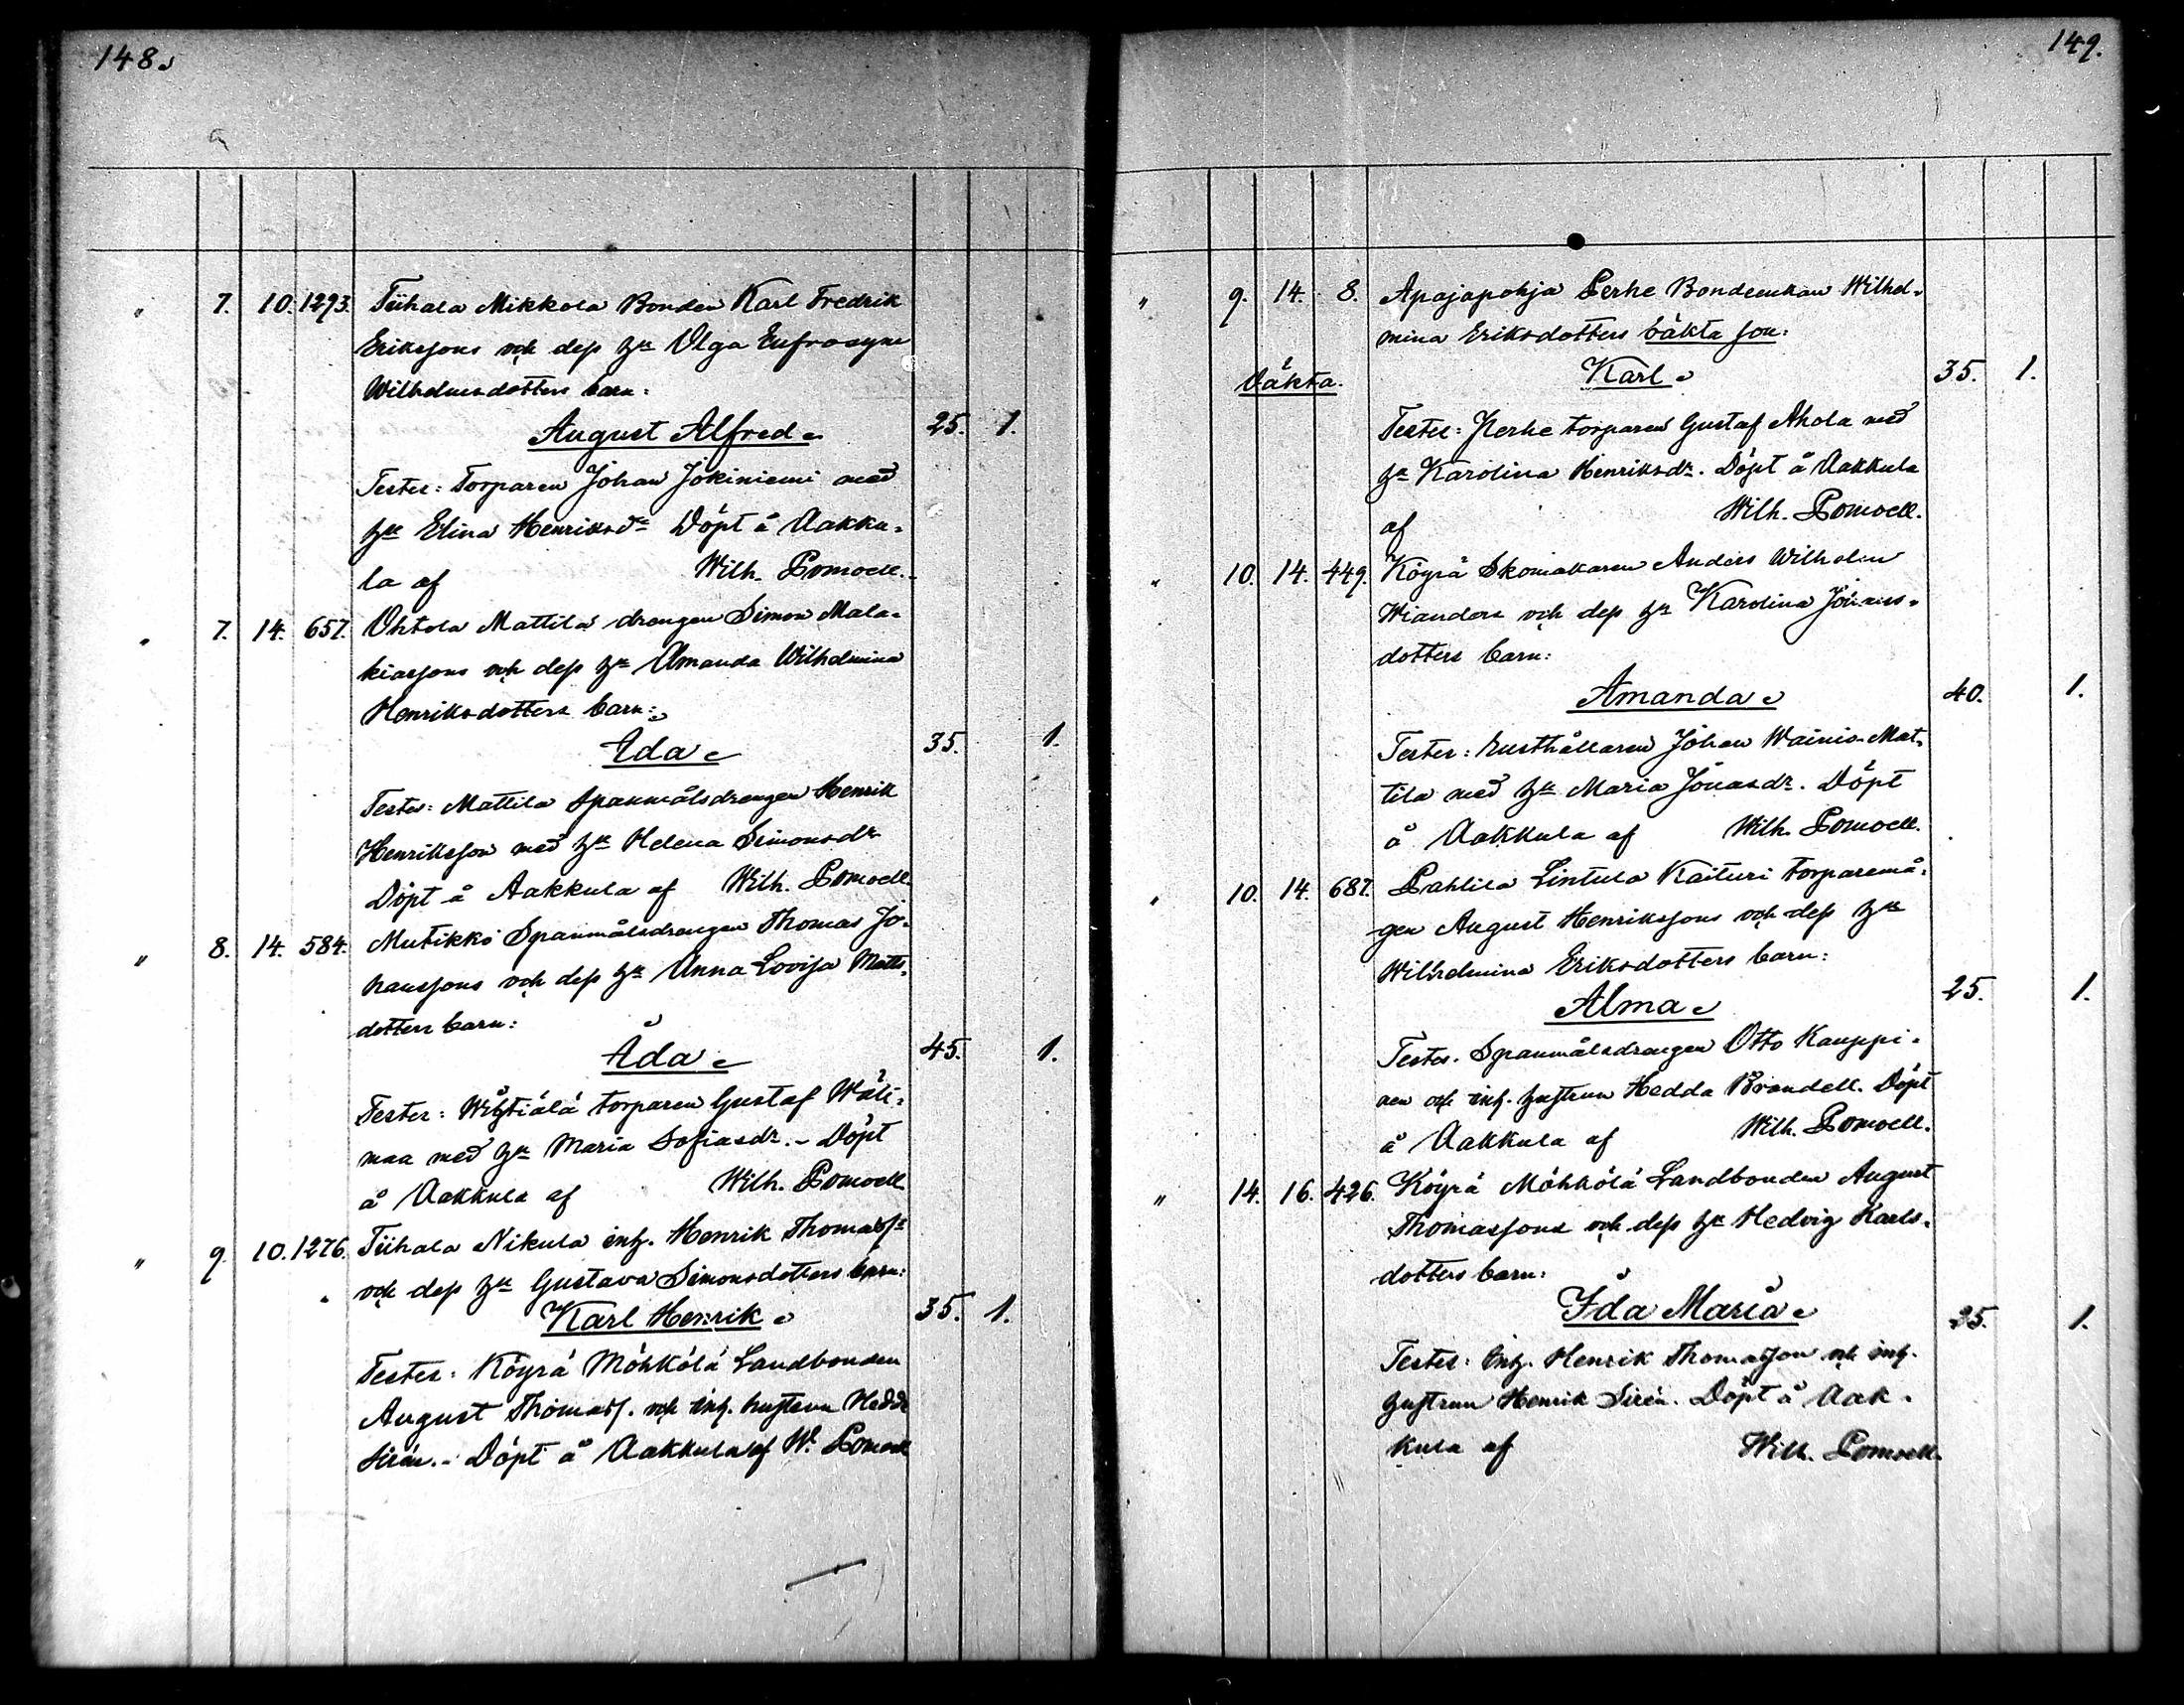 148.
" 7. 10. 1293. Tiihala Mikkola Bonden Karl Fredrik
Erikssons och dess hu Olga Eufrosyne
Wilhelmsdotters barn:
August Alfred 25. 1.
Testes: Torparen Johan Jokiniemi med
hu Elina Henriksdr Döpt å Aakku-
la af Wilh. Pomoell.
" 7. 14. 657. Ohtola Mattila drengen Simon Mala-
kiassons och dess hu Amanda Wilhelmina
Henriksdotters barn:
Ida 35. 1.
Testes: Mattila Spanmålsdrengen Henrik
Henriksson med hu Helena Simonsdr
Döpt å Aakkula af Wilh. Pomoell.
" 8. 14. 584. Mutikko Spanmålsdrengen Thomas Jo-
hanssons och dess hu Anna Lovisa Matts-
dotters barn:
Ida 45. 1.
Testes: torparen Gustaf Wäli-
maa med hu Maria Sofiasdr. - Döpt
å Aakkula af Wilh. Pomoell
" 9. 10. 1276. Tiihala Nikula inh. Henrik Thomass:
och dess hu Gustava Simonsdotters barn:
Karl Henrik 35. 1.
Testes: Köyrä Möhkölä Landbonden
August Thomass. och inh. hustrun Hedda
Sirén. - Döpt å Aakkula af W. Pomoell
149.
" 9. 14. 8. Apajapohja Perhe Bondeenkan Wilhel-
mina Eriksdotters oäkta son:
Oäkta. Karl 35. 1.
Testes: Perhe torparen Gustaf Ahola med
hu Karolina Henriksdr. Döpt å Aakkula
af Wilh. Pomoell.
" 10. 14. 449. Köyrä Skomakaren Anders Wilhelm
Wianders och dess hu Karolina Johans-
dotters barn:
Amanda 40. 1.
Testes: Rusthållaren Johan Wainio-Mat-
tila med hu Maria Jonasdr. Döpt
å Aakkula af Wilh. Pomoell.
" 10. 14. 687. Pahlila Lintula Kaituri torparemå-
gen August Henrikssons och dess hu
Wilhelmina Eriksdotters barn:
Alma 25. 1.
Testes. Spanmålsdrengen Otto Kauppi-
nen och inh. hustrun Hedda Brandell. Döpt
å Aakkula af Wilh. Pomoell.
" 14. 16. 426. Köyrä Möhkölä Landbonden August
Thomassons och dess hu Hedvig Karls-
dotters barn:
Ida Maria 35. 1.
Testes: Inh. Henrik Thomasson och inh.
hustrun Henrik Sirén. Döpt å Aak-
kula af Wilh. Pomoell.